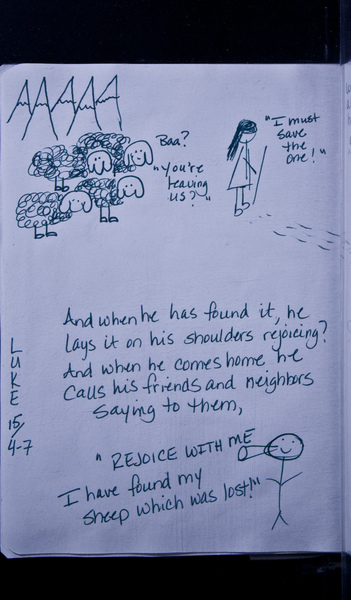 Baa?
"You're
leaving
us?"
"I must
save
the
one!"
And when he has found it, he
lays it on his shoulders rejoicing?
And when he comes home he
calls his friends and neighbors
saying to them,
"REJOICE WITH ME
I have found my
sheep which was lost!"
LUKE
15/
4-7